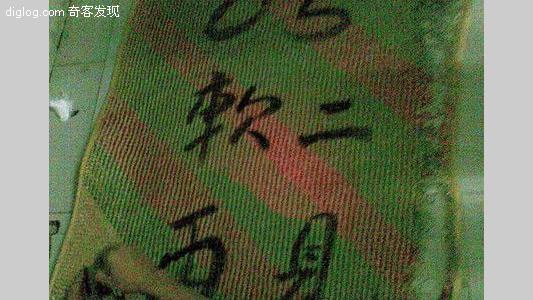 diglog.com 奇客发现
05
軟二
百具